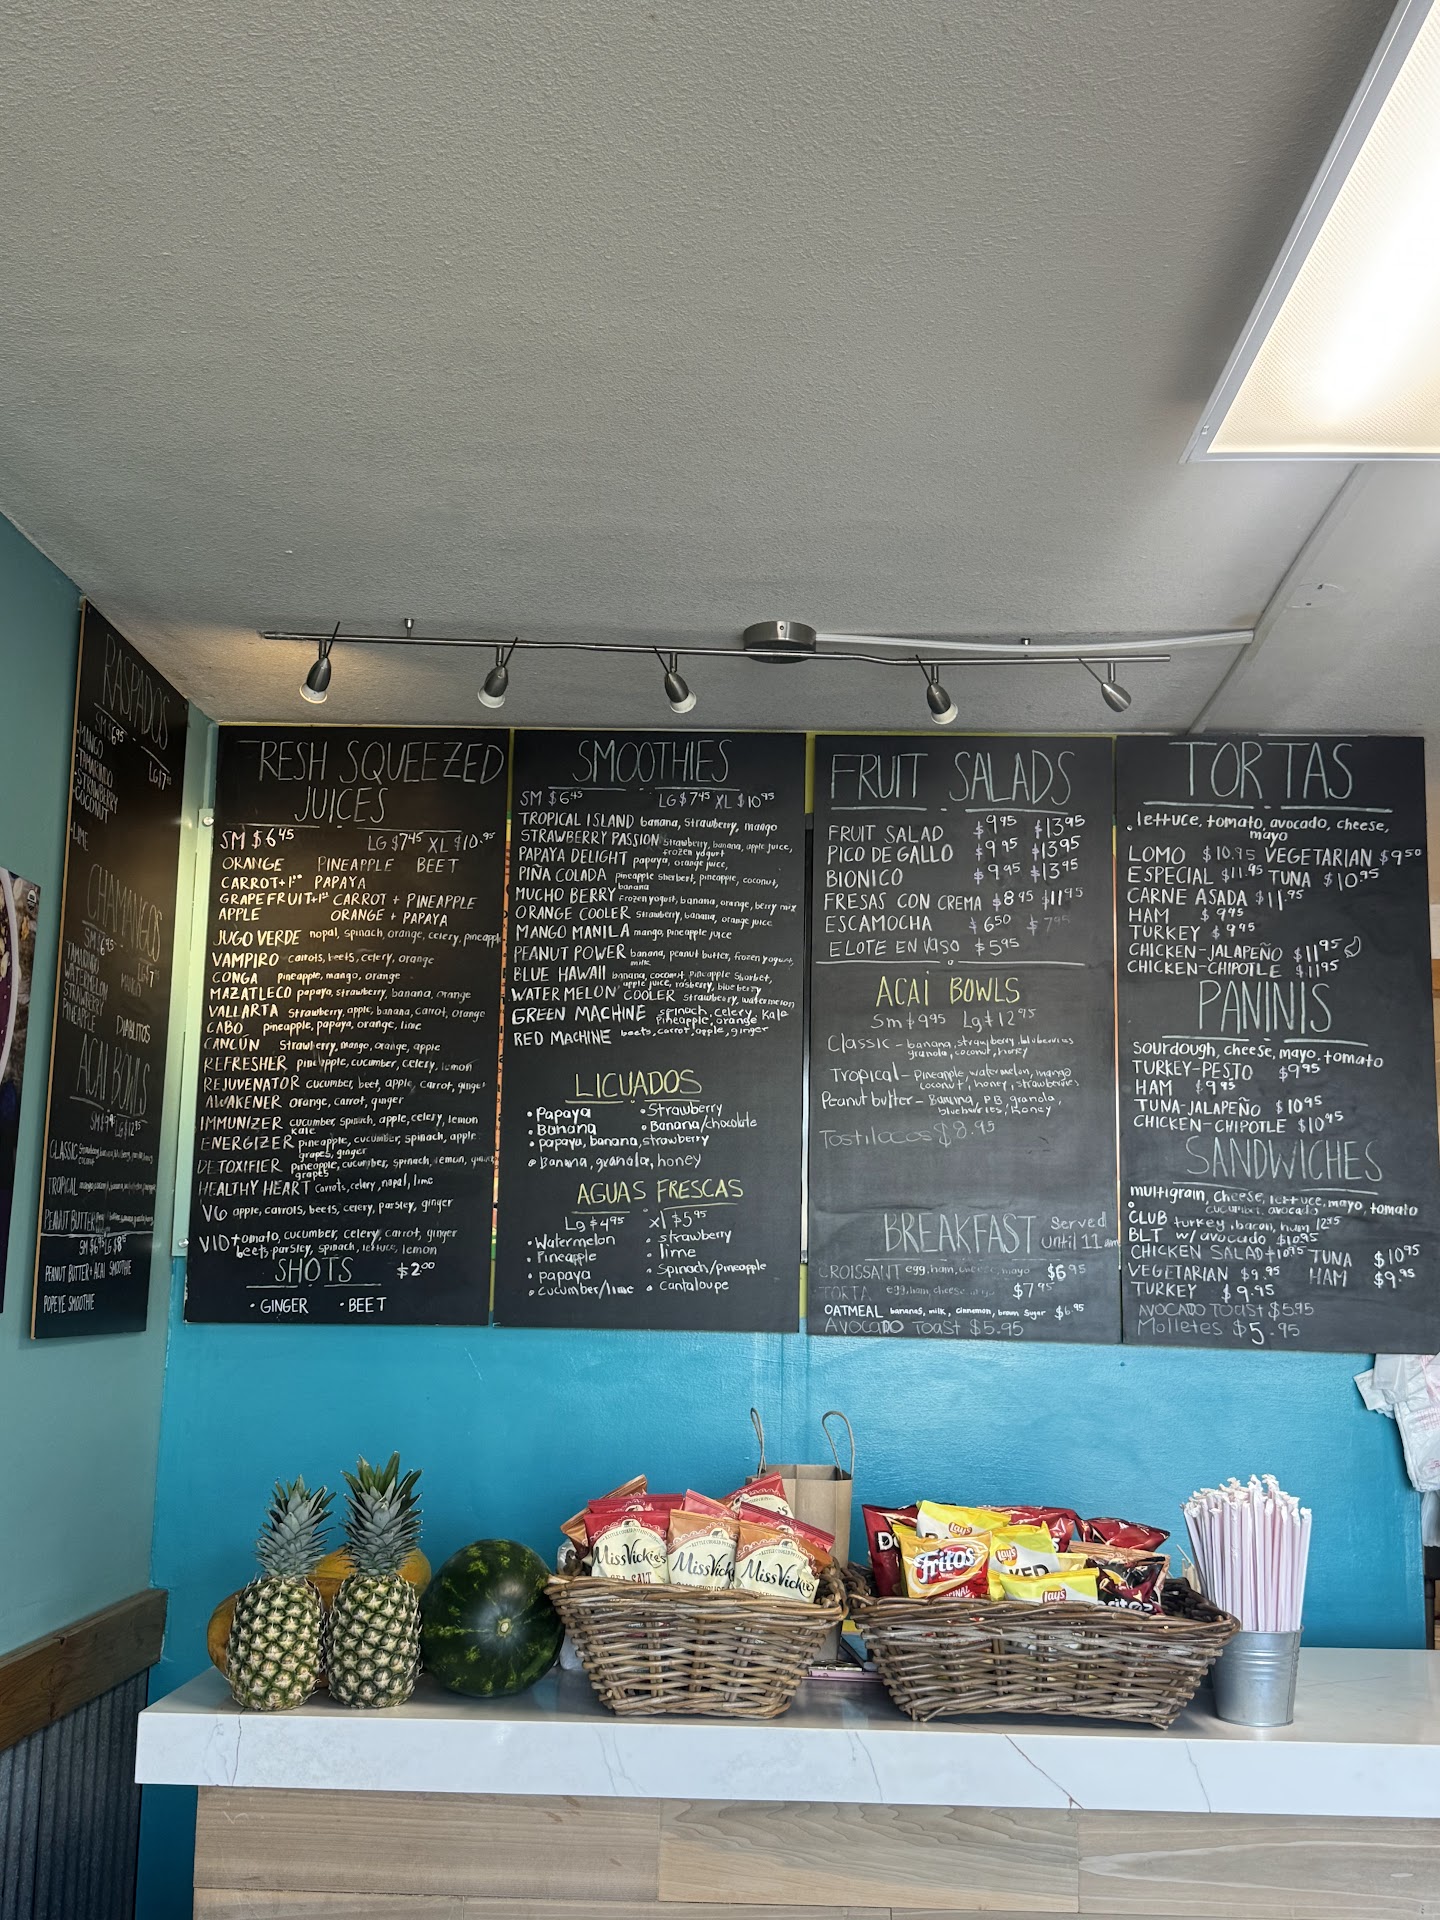 RASPADOS
SM $6.45
LG $7
MANGO
TAMARINDO
STRAWBERRY
COCONUT
LIME
CHAMANGOS
SM $6.45
LG $7
TAMARINDO
MANGO
WATERMELON
STRAWBERRY
PINEAPPLE
DIABLITOS
ACAI BOWLS
SM $9.95 LG $12.95
CLASSIC
TROPICAL
PEANUT BUTTER
SM $6.45 LG $8
PEANUT BUTTER + ACAI SMOOTHIE
POPEYE SMOOTHIE
RESH SQUEEZED
JUICES
SM $6.45 LG $7.45 XL $10.95
ORANGE PINEAPPLE BEET
CARROT+1.00 PAPAYA
GRAPEFRUIT+1.25 CARROT + PINEAPPLE
APPLE ORANGE + PAPAYA
JUGO VERDE nopal, spinach, orange, celery, pineapple
VAMPIRO carrots, beets, celery, orange
CONGA pineapple, mango, orange
MAZATLECO papaya, strawberry, banana, orange
VALLARTA Strawberry, apple, banana, carrot, orange
CABO pineapple, papaya, orange, lime
CANCÚN Strawberry, mango, orange, apple
REFRESHER pineapple, cucumber, celery, lemon
REJUVENATOR cucumber, beet, apple, carrot, ginger
AWAKENER orange, carrot, ginger
IMMUNIZER cucumber, spinach, apple, celery, lemon
kale
ENERGIZER pineapple, cucumber, spinach, apple
grapes, ginger
DETOXIFIER pineapple, cucumber, spinach, lemon, ginger
grapes
HEALTHY HEART carrots, celery, nopal, lime
V6 apple, carrots, beets, celery, parsley, ginger
V10 tomato, cucumber, celery, carrot, ginger
beets, parsley, spinach, lettuce, lemon
SHOTS $2.00
• GINGER • BEET
SMOOTHIES
SM $6.45 LG $7.45 XL $10.95
TROPICAL ISLAND banana, strawberry, mango
STRAWBERRY PASSION Strawberry, banana, apple juice,
frozen yogurt
PAPAYA DELIGHT papaya, orange juice,
PIÑA COLADA pineapple sherbert, pineapple, coconut,
banana
MUCHO BERRY Frozen yogurt, banana, orange, berry mix
ORANGE COOLER Strawberry, banana, orange juice
MANGO MANILA mango, pineapple juice
PEANUT POWER banana, peanut butter, frozen yogurt,
milk
BLUE HAWAII banana, coconut, pineapple Sherbet,
apple juice, rasberry, blueberry
WATERMELON COOLER strawberry, watermelon
GREEN MACHINE spinach, celery, kale
pineapple, orange
RED MACHINE beets, carrot, apple, ginger
LICUADOS
• Papaya • Strawberry
• Banana • Banana/chocolate
• papaya, banana, strawberry
• Banana, granola, honey
AGUAS FRESCAS
Lg $4.95 xl $5.95
• Watermelon • strawberry
• Pineapple • lime
• papaya • Spinach/pineapple
• cucumber/lime • Cantaloupe
FRUIT SALADS
FRUIT SALAD $9.95 $13.95
PICO DE GALLO $9.95 $13.95
BIONICO $9.95 $13.95
FRESAS CON CREMA $8.95 $11.95
ESCAMOCHA $6.50 $7.95
ELOTE EN VASO $5.95
ACAI BOWLS
Sm $9.95 Lg $12.95
Classic - banana, strawberry, blueberries
granola, coconut, honey
Tropical - Pineapple, watermelon, mango
coconut, honey, strawberries
Peanut butter - Banana, PB, granola,
blueberries, honey
Tostilocos $8.95
BREAKFAST Served
until 11 am
CROISSANT egg, ham, cheese, mayo $6.95
TORTA egg, ham, cheese $7.95
OATMEAL bananas, milk, cinnemon, brown Sugar $6.95
AVOCADO TOAST $5.95
TORTAS
lettuce, tomato, avocado, cheese,
mayo
LOMO $10.95 VEGETARIAN $9.50
ESPECIAL $11.95 TUNA $10.95
CARNE ASADA $11.95
HAM $9.95
TURKEY $9.95
CHICKEN-JALAPEÑO $11.95
CHICKEN-CHIPOTLE $11.95
PANINIS
Sourdough, cheese, mayo, tomato
TURKEY-PESTO $9.95
HAM $9.95
TUNA-JALAPEÑO $10.95
CHICKEN-CHIPOTLE $10.95
SANDWICHES
multigrain, cheese, lettuce, mayo, tomato
cucumber, avocado
CLUB turkey, bacon, ham 12.95
BLT w/ avocado $10.95
CHICKEN SALAD $10.95 TUNA $10.95
VEGETARIAN $9.95 HAM $9.95
TURKEY $9.95
AVOCADO TOAST $5.95
Molletes $5.95
Miss Vickie's
SEA SALT
Miss Vick
Miss Vickie
Fritos
ORIGINAL
Lay's
Lay's
Lay's